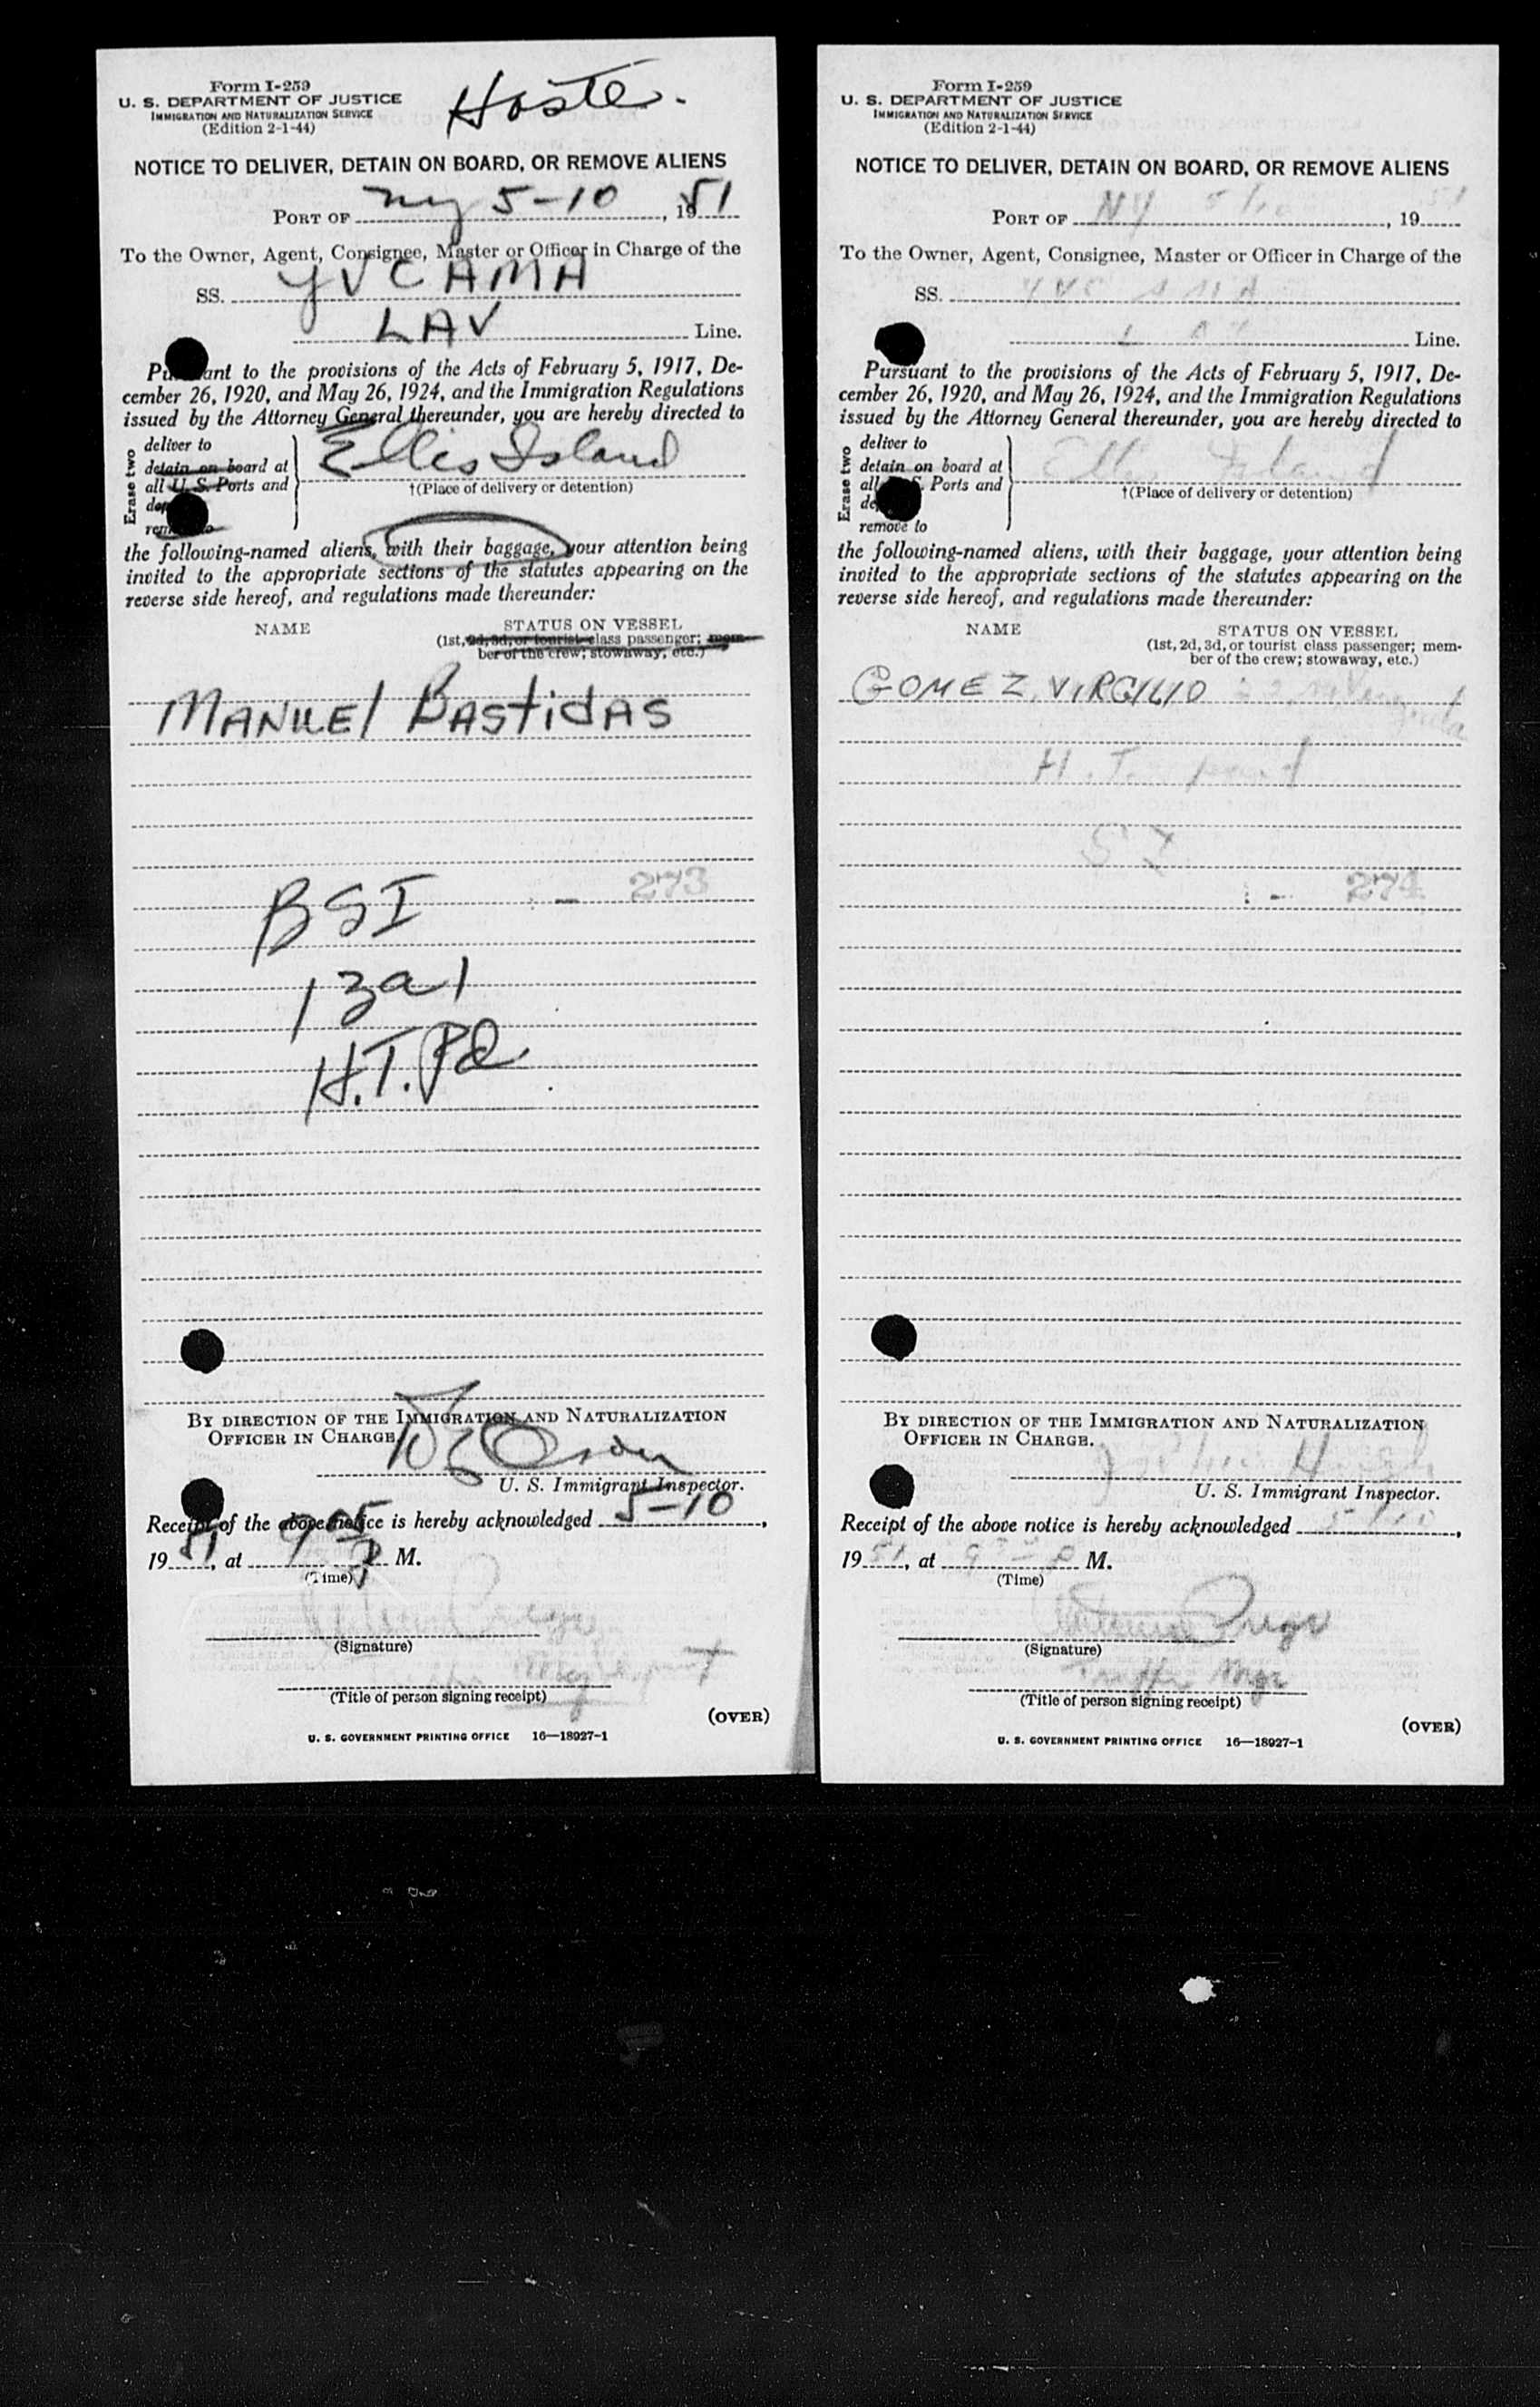 Form I-259
U. S. DEPARTMENT OF JUSTICE
IMMIGRATION AND NATURALIZATION SERVICE
(Edition 2-1-44)
Hoste.
NOTICE TO DELIVER, DETAIN ON BOARD, OR REMOVE ALIENS
PORT OF NY 5-10, 1951
To the Owner, Agent, Consignee, Master or Officer in Charge of the
SS. YVCAMA
LAV Line.
Pursuant to the provisions of the Acts of February 5, 1917, De-
cember 26, 1920, and May 26, 1924, and the Immigration Regulations
issued by the Attorney General thereunder, you are hereby directed to
Erase two
deliver to
detain on board at
all U. S. Ports and
remove to
Ellis Island
†(Place of delivery or detention)
the following-named aliens, with their baggage, your attention being
invited to the appropriate sections of the statutes appearing on the
reverse side hereof, and regulations made thereunder:
NAME STATUS ON VESSEL
(1st, 2d, 3d, or tourist class passenger; mem-
ber of the crew; stowaway, etc.)
MANUEL BASTIDAS
BSI - 273
H.T. Pd.
BY DIRECTION OF THE IMMIGRATION AND NATURALIZATION
OFFICER IN CHARGE.
U. S. Immigrant Inspector.
Receipt of the above notice is hereby acknowledged 5-10,
1951, at M.
(Time)
(Signature)
(Title of person signing receipt)
(OVER)
U. S. GOVERNMENT PRINTING OFFICE 16—18927-1
Form I-259
U. S. DEPARTMENT OF JUSTICE
IMMIGRATION AND NATURALIZATION SERVICE
(Edition 2-1-44)
NOTICE TO DELIVER, DETAIN ON BOARD, OR REMOVE ALIENS
PORT OF NY 5/10, 1951
To the Owner, Agent, Consignee, Master or Officer in Charge of the
SS. YVCAMA
LAV Line.
Pursuant to the provisions of the Acts of February 5, 1917, De-
cember 26, 1920, and May 26, 1924, and the Immigration Regulations
issued by the Attorney General thereunder, you are hereby directed to
Erase two
deliver to
detain on board at
all U. S. Ports and
remove to
Ellis Island
†(Place of delivery or detention)
the following-named aliens, with their baggage, your attention being
invited to the appropriate sections of the statutes appearing on the
reverse side hereof, and regulations made thereunder:
NAME STATUS ON VESSEL
(1st, 2d, 3d, or tourist class passenger; mem-
ber of the crew; stowaway, etc.)
GOMEZ, VIRGILIO
H.T.
SI
- 274
BY DIRECTION OF THE IMMIGRATION AND NATURALIZATION
OFFICER IN CHARGE.
U. S. Immigrant Inspector.
Receipt of the above notice is hereby acknowledged 5/10,
1951, at M.
(Time)
(Signature)
Traffic Mgr
(Title of person signing receipt)
(OVER)
U. S. GOVERNMENT PRINTING OFFICE 16—18927-1